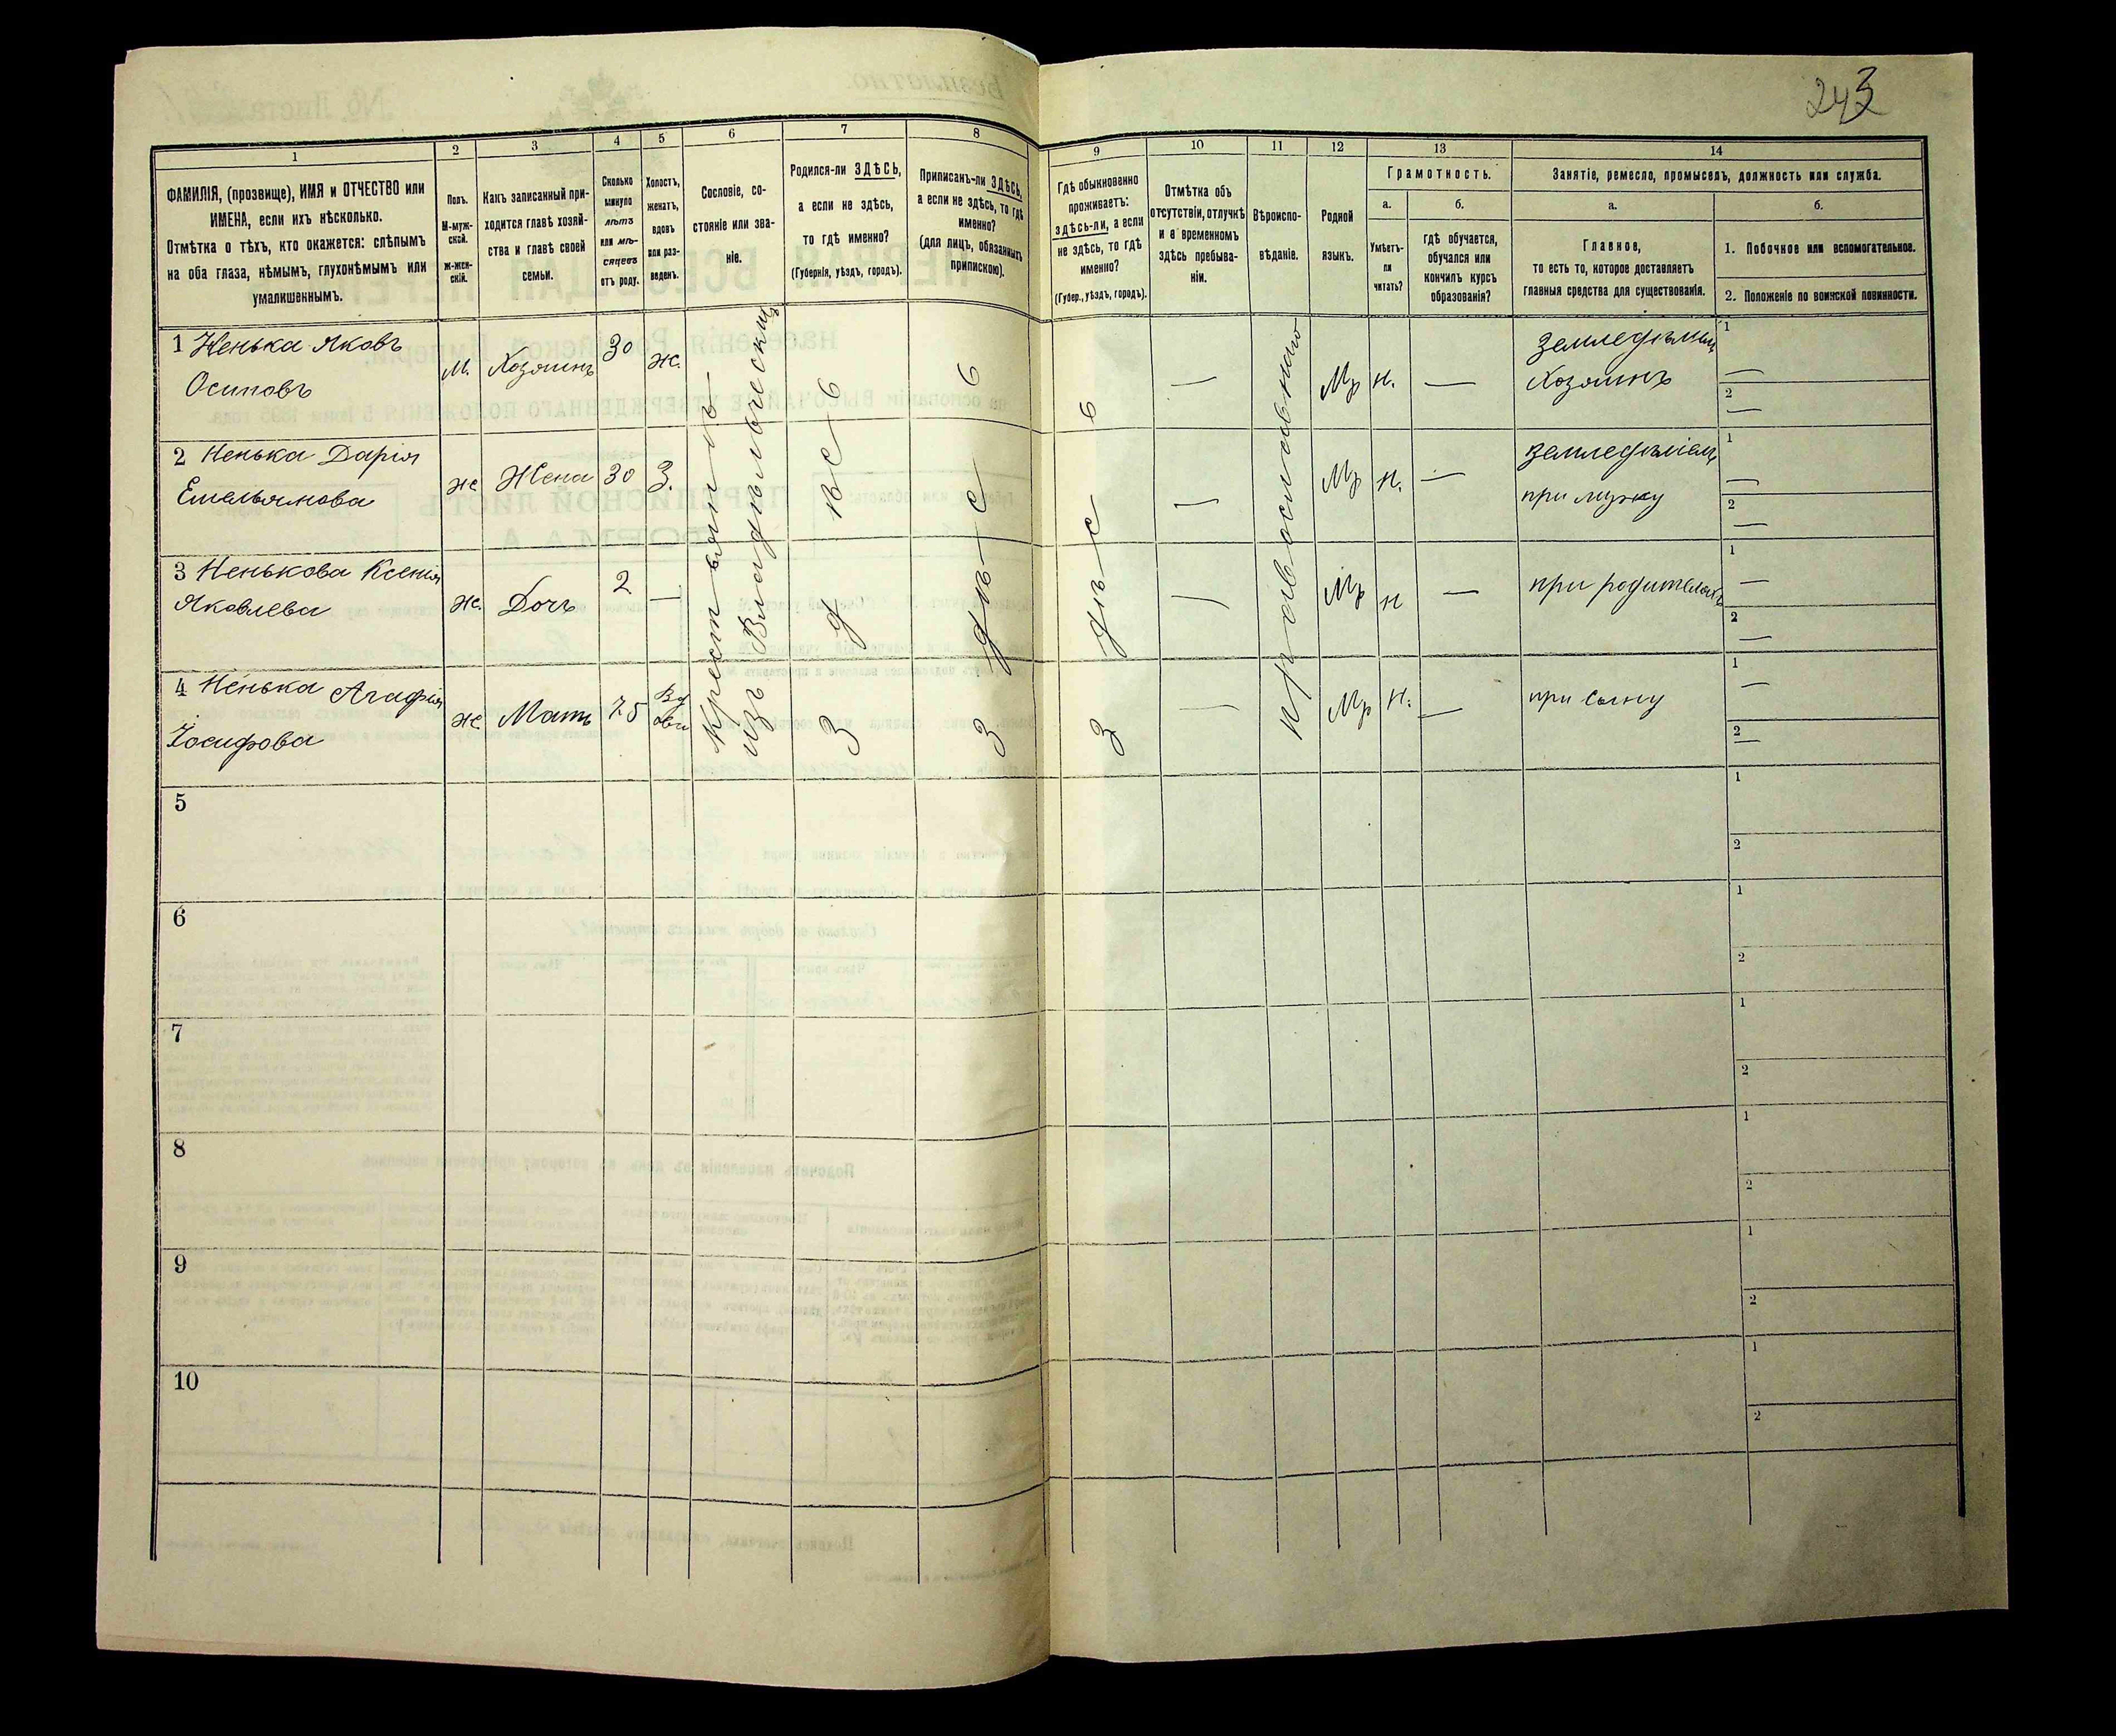 243
1
2
3
4
5
6
7
8
9
10
11
12
13
14
ФАМИЛІЯ, (прозвище), ИМЯ и ОТЧЕСТВО или
ИМЕНА, если ихъ нѣсколько.
Отмѣтка о тѣхъ, кто окажется: слѣпымъ
на оба глаза, нѣмымъ, глухонѣмымъ или
умалишеннымъ.
Полъ.
М-муж-
ской.
Ж-жен-
скій.
Какъ записанный при-
ходится главѣ хозяй-
ства и главѣ своей
семьи.
Сколько
минуло
лѣтъ
или мѣ-
сяцевъ
отъ роду.
Холостъ,
женатъ,
вдовъ
или раз-
веденъ.
Сословіе, со-
стояніе или зва-
ніе.
Родился-ли ЗДѢСЬ,
а если не здѣсь,
то гдѣ именно?
(Губернія, уѣздъ, городъ).
Приписанъ-ли ЗДѢСЬ,
а если не здѣсь, то гдѣ
именно?
(для лицъ, обязанныхъ
припискою).
Гдѣ обыкновенно
проживаетъ:
здѣсь-ли, а если
не здѣсь, то гдѣ
именно?
(Губер., уѣздъ, городъ).
Отмѣтка объ
отсутствіи, отлучкѣ
и о временномъ
здѣсь пребыва-
ніи.
Вѣроиспо-
вѣданіе.
Родной
языкъ.
Грамотность.
а.
Умѣетъ-
ли
читать?
б.
гдѣ обучается,
обучался или
кончилъ курсъ
образованія?
Занятіе, ремесло, промыселъ, должность или служба.
а.
Главное,
то есть то, которое доставляетъ
главныя средства для существованія.
б.
1. Побочное или вспомогательное.
2. Положеніе по воинской повинности.
1 Ненька Яковъ
Осиповъ
М. Хозяинъ 30 ж.
Мр н. —
Хозяинъ
1 —
2 —
2 Ненька Дарія
Емельянова
ж Жена 30 З.
Мр н. —
при мужу
1 —
2 —
3 Ненькова Ксенія
Яковлева
ж. Дочь 2 —
Мр н —
при родителяхъ
1 —
2 —
4 Ненька Агафія
Іосифова
ж. Мать 75
Мр н. —
при сыну
1 —
2 —
изъ
Православною
5
1
2
6
1
2
7
1
2
8
1
2
9
1
2
10
1
2